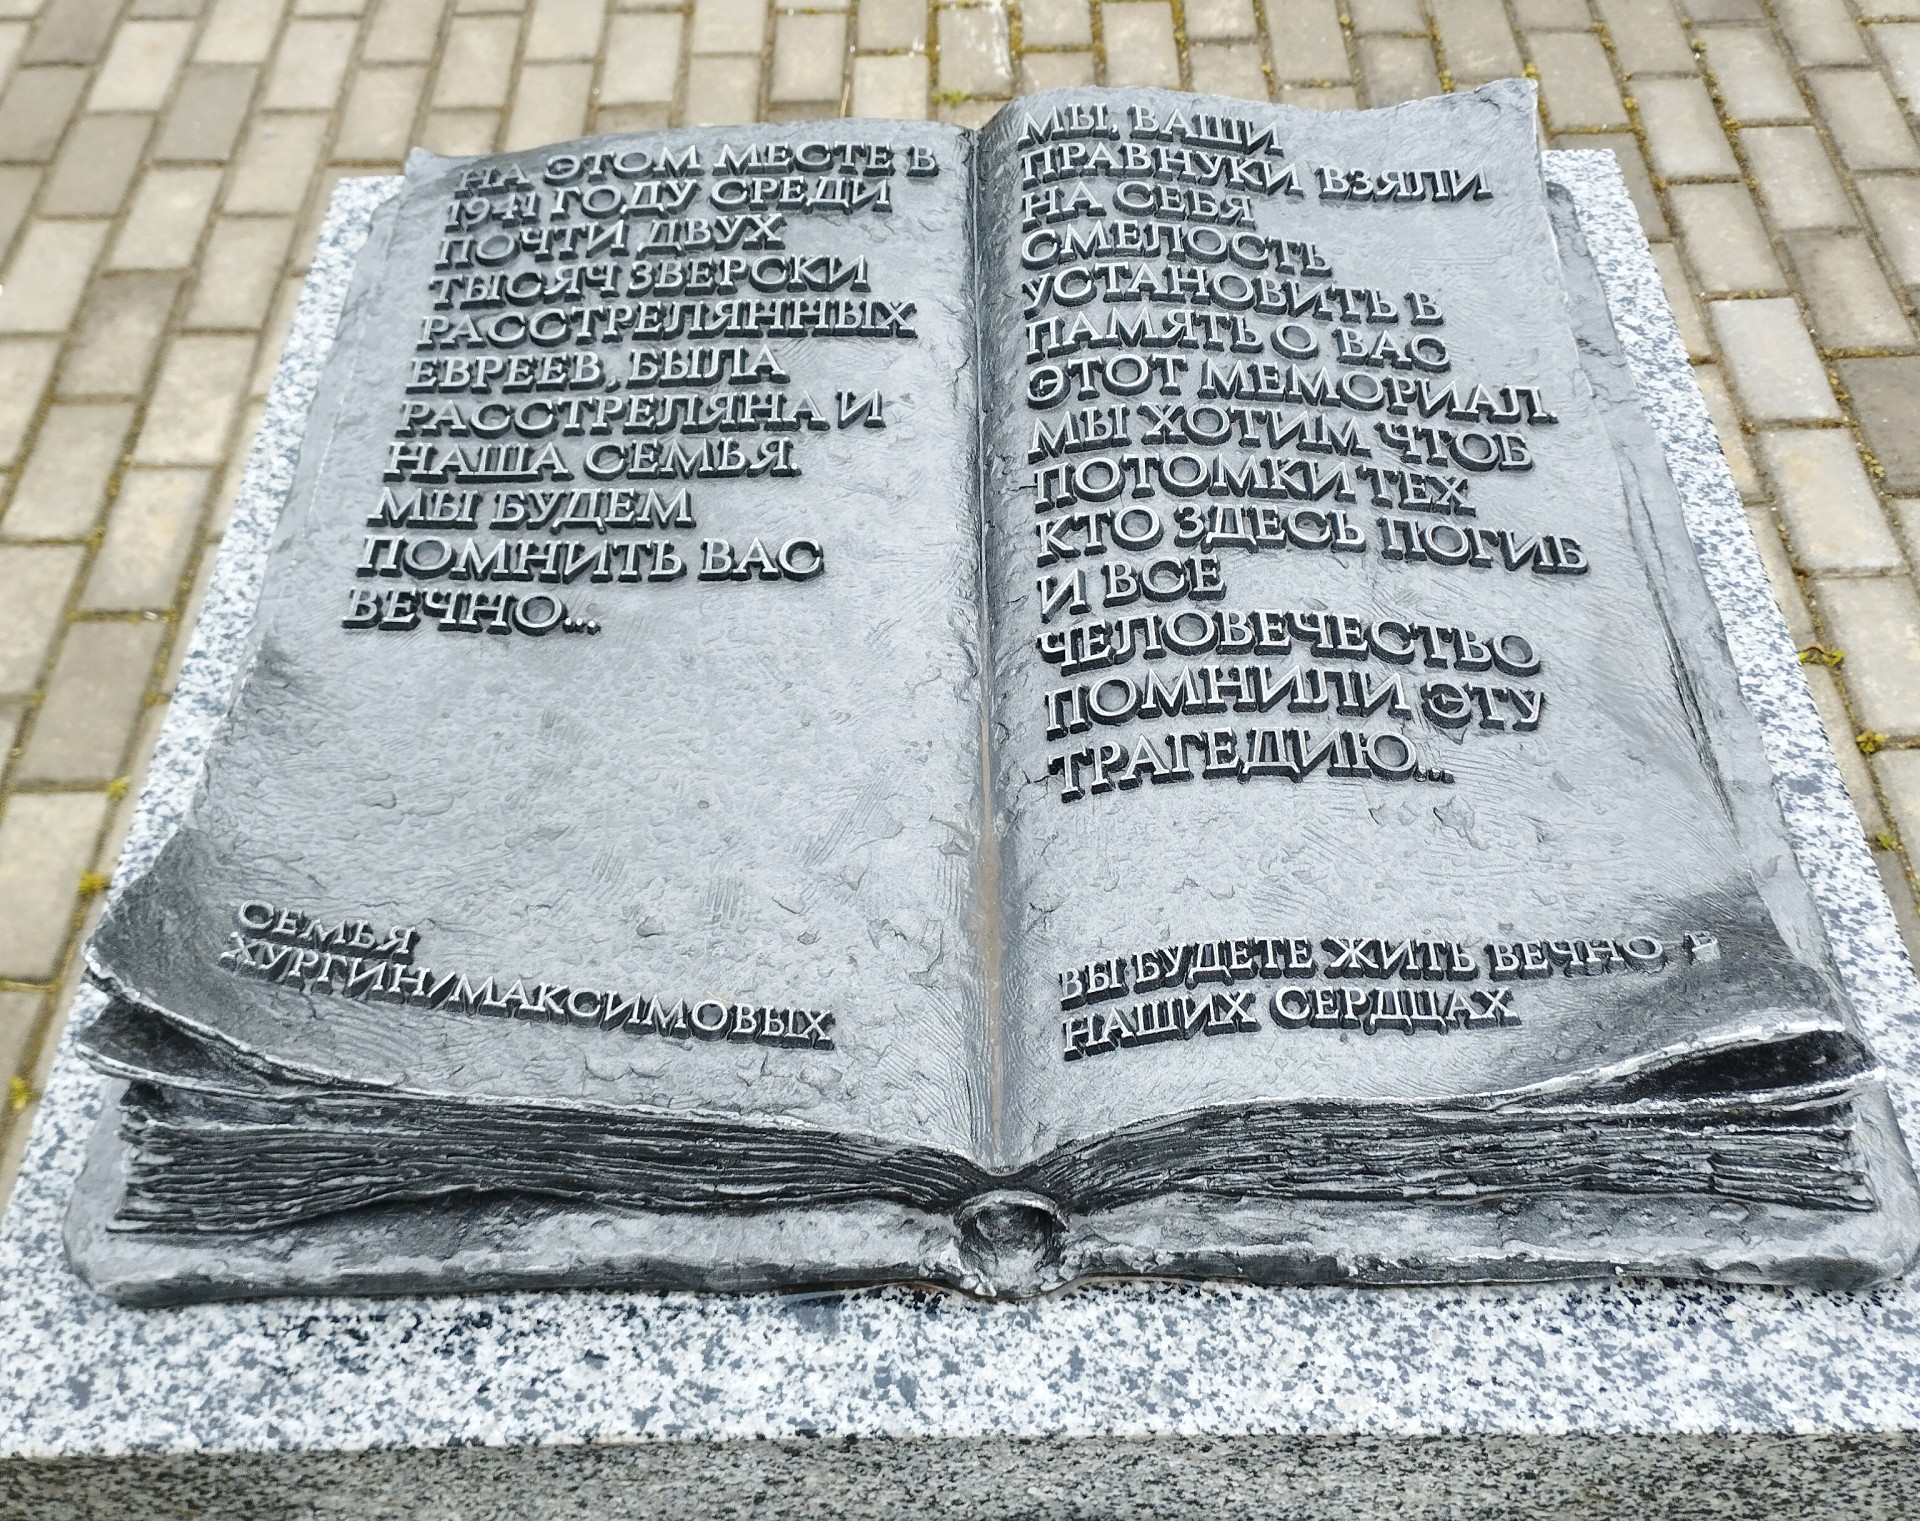 НА ЭТОМ МЕСТЕ В
1941 ГОДУ СРЕДИ
ПОЧТИ ДВУХ
ТЫСЯЧ ЗВЕРСКИ
РАССТРЕЛЯННЫХ
ЕВРЕЕВ, БЫЛА
РАССТРЕЛЯНА И
НАША СЕМЬЯ.
МЫ БУДЕМ
ПОМНИТЬ ВАС
ВЕЧНО...
СЕМЬЯ
ХУРГИН/МАКСИМОВЫХ
МЫ, ВАШИ
ПРАВНУКИ ВЗЯЛИ
НА СЕБЯ
СМЕЛОСТЬ
УСТАНОВИТЬ В
ПАМЯТЬ О ВАС
ЭТОТ МЕМОРИАЛ.
МЫ ХОТИМ ЧТОБ
ПОТОМКИ ТЕХ
КТО ЗДЕСЬ ПОГИБ
И ВСЕ
ЧЕЛОВЕЧЕСТВО
ПОМНИЛИ ЭТУ
ТРАГЕДИЮ...
ВЫ БУДЕТЕ ЖИТЬ ВЕЧНО В
НАШИХ СЕРДЦАХ